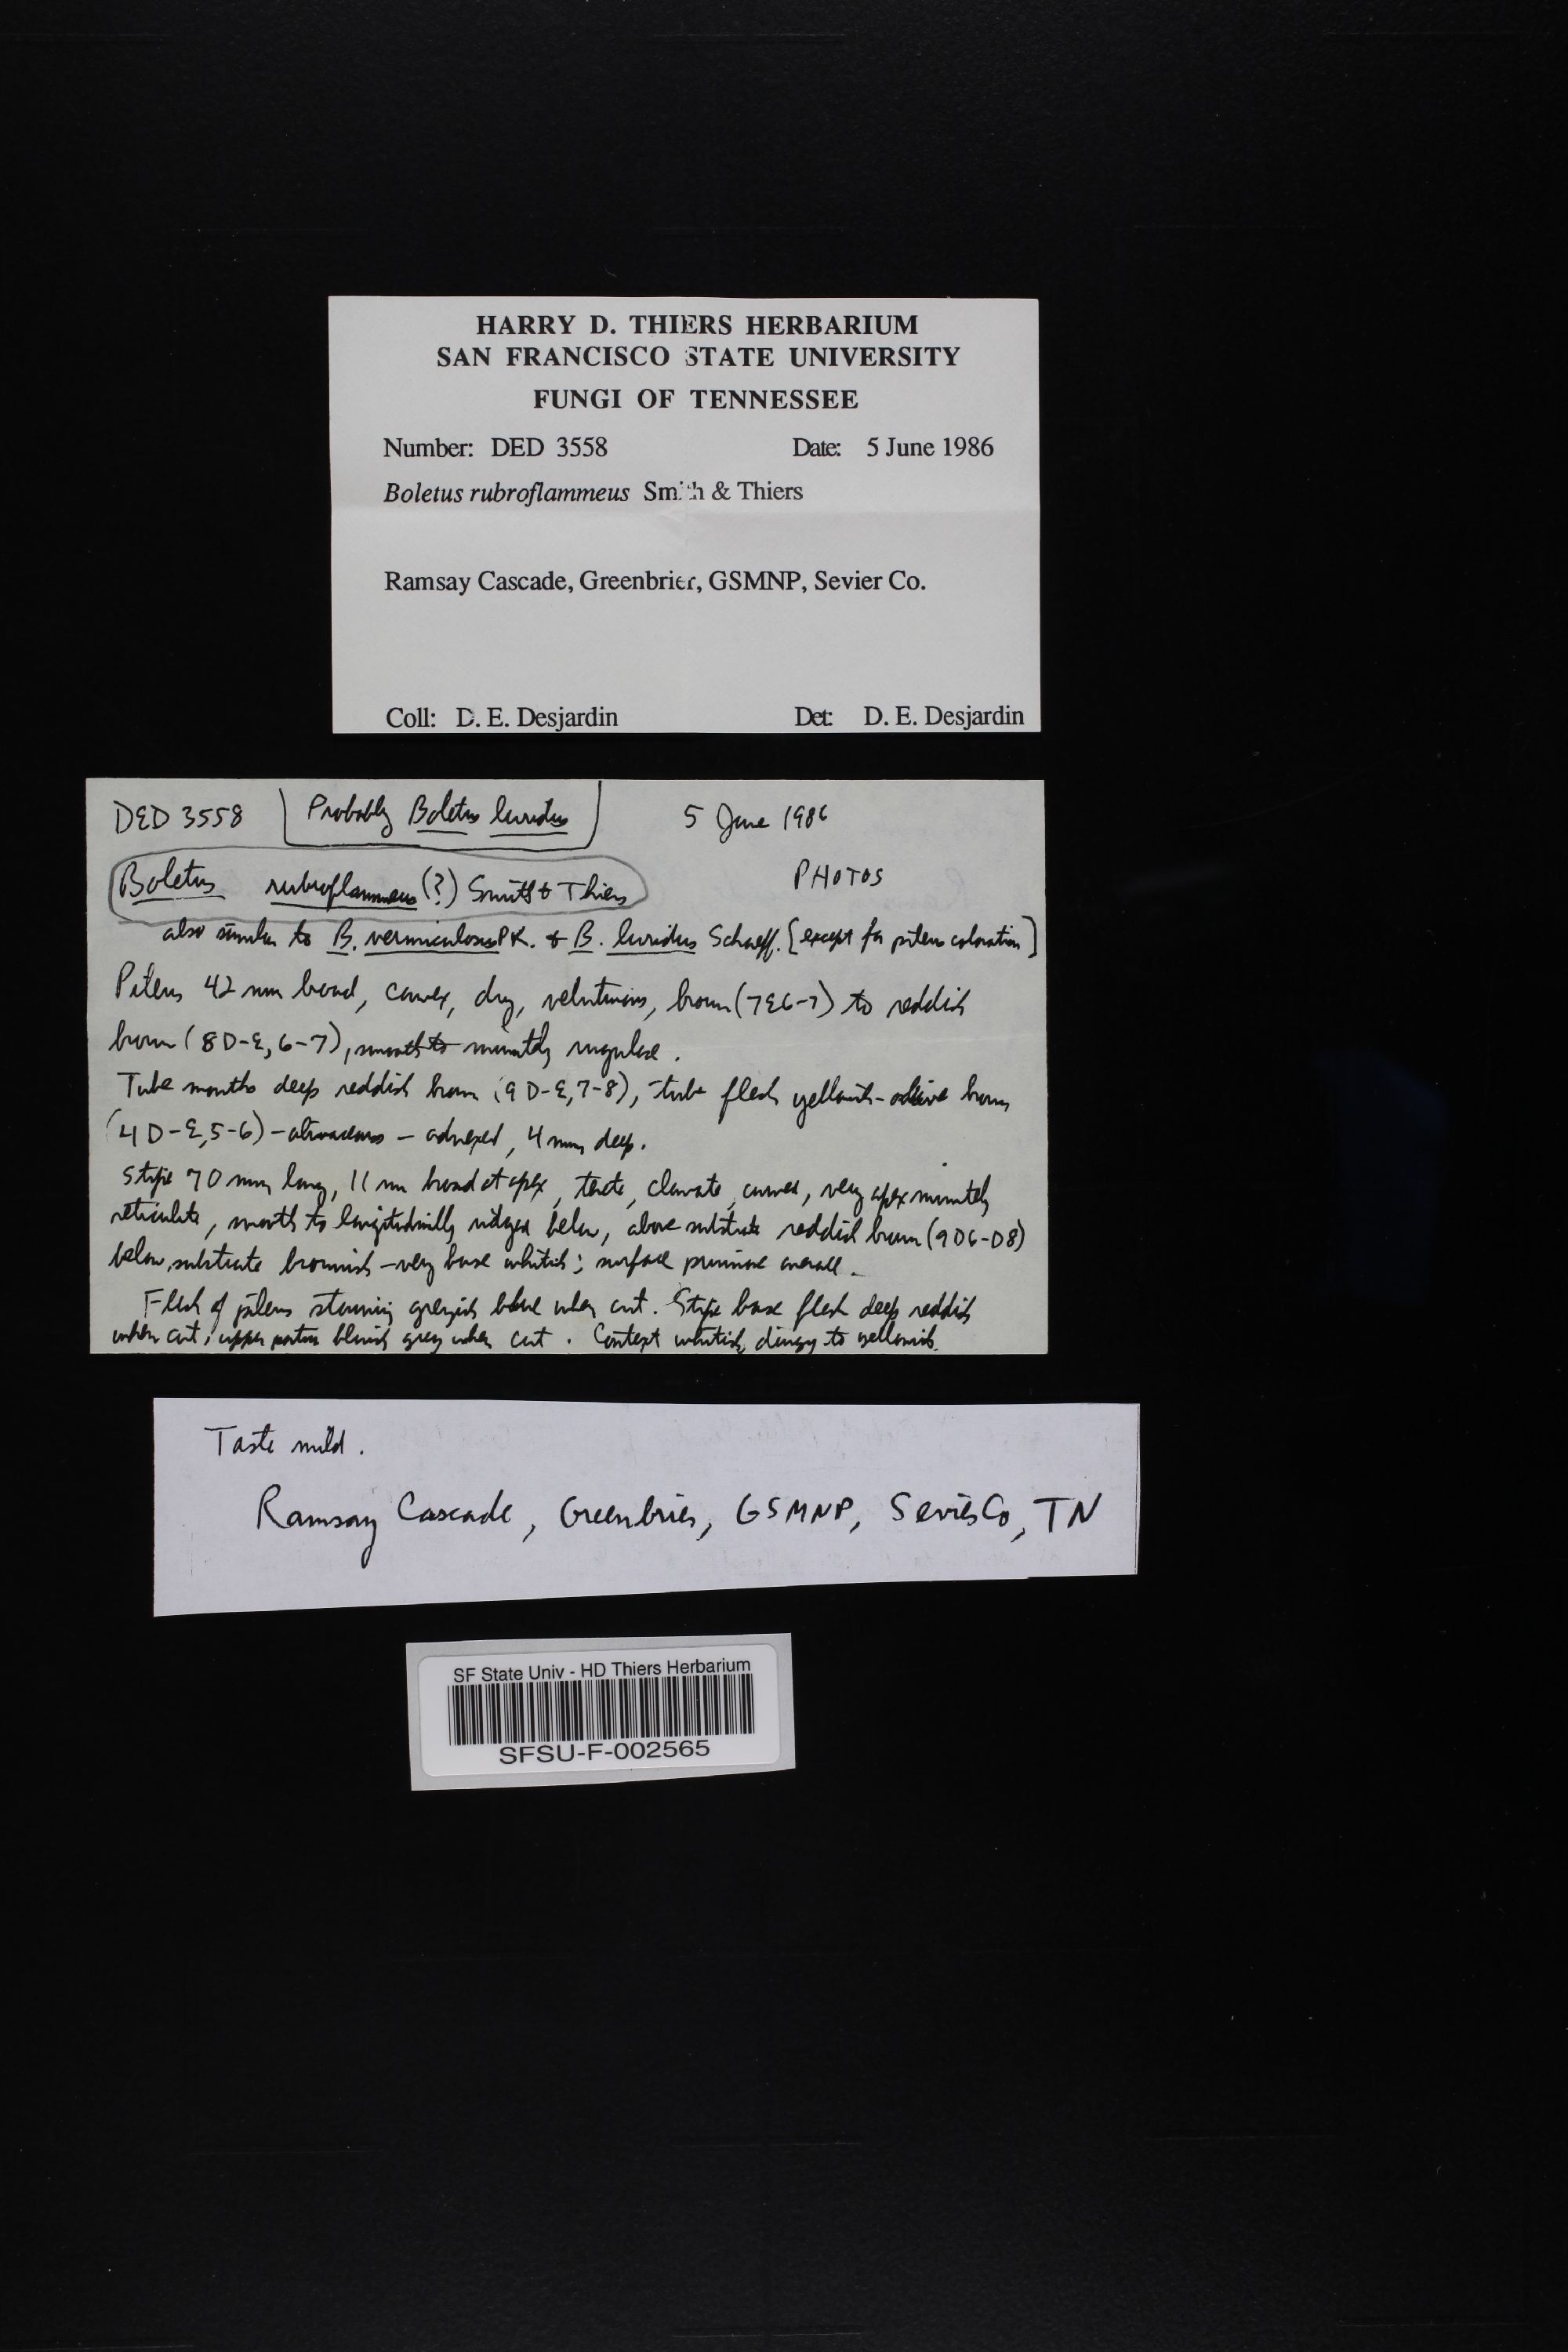 HARRY D. THIERS HERBARIUM
SAN FRANCISCO STATE UNIVERSITY
FUNGI OF TENNESSEE
Number: DED 3558 Date: 5 June 1986
Boletus rubroflammeus Smith & Thiers
Ramsay Cascade, Greenbrier, GSMNP, Sevier Co.
Coll: D. E. Desjardin Det: D. E. Desjardin
DED 3558 Probably Boletus luridus 5 June 1986
Boletus rubroflammeus (?) Smith & Thiers PHOTOS
also similar to B. vermiculosus PK. & B. luridus Schaeff. [except for pileus coloration]
Pileus 42 mm broad, convex, dry, velutinous, brown (7E6-7) to reddish
brown (8D-E, 6-7), smooth to minutely rugulose.
Tube mouths deep reddish brown (9D-E, 7-8), tube flesh yellowish-olive brown
(4D-E, 5-6) - olivaceous - adnexed, 4 mm deep.
Stipe 70 mm long, 11 mm broad at apex, terete, clavate, curved, very apex minutely
reticulate, smooth to longitudinally ridged below, above substrate reddish brown (9D6-D8)
below substrate brownish - very base whitish; surface pruinose overall.
Flesh of pileus staining greyish blue when cut. Stipe base flesh deep reddish
when cut, upper portion bluish grey when cut. Context whitish, dingy to yellowish.
Taste mild.
Ramsay Cascade, Greenbrier, GSMNP, Sevier Co, TN
SF State Univ - HD Thiers Herbarium
SFSU-F-002565